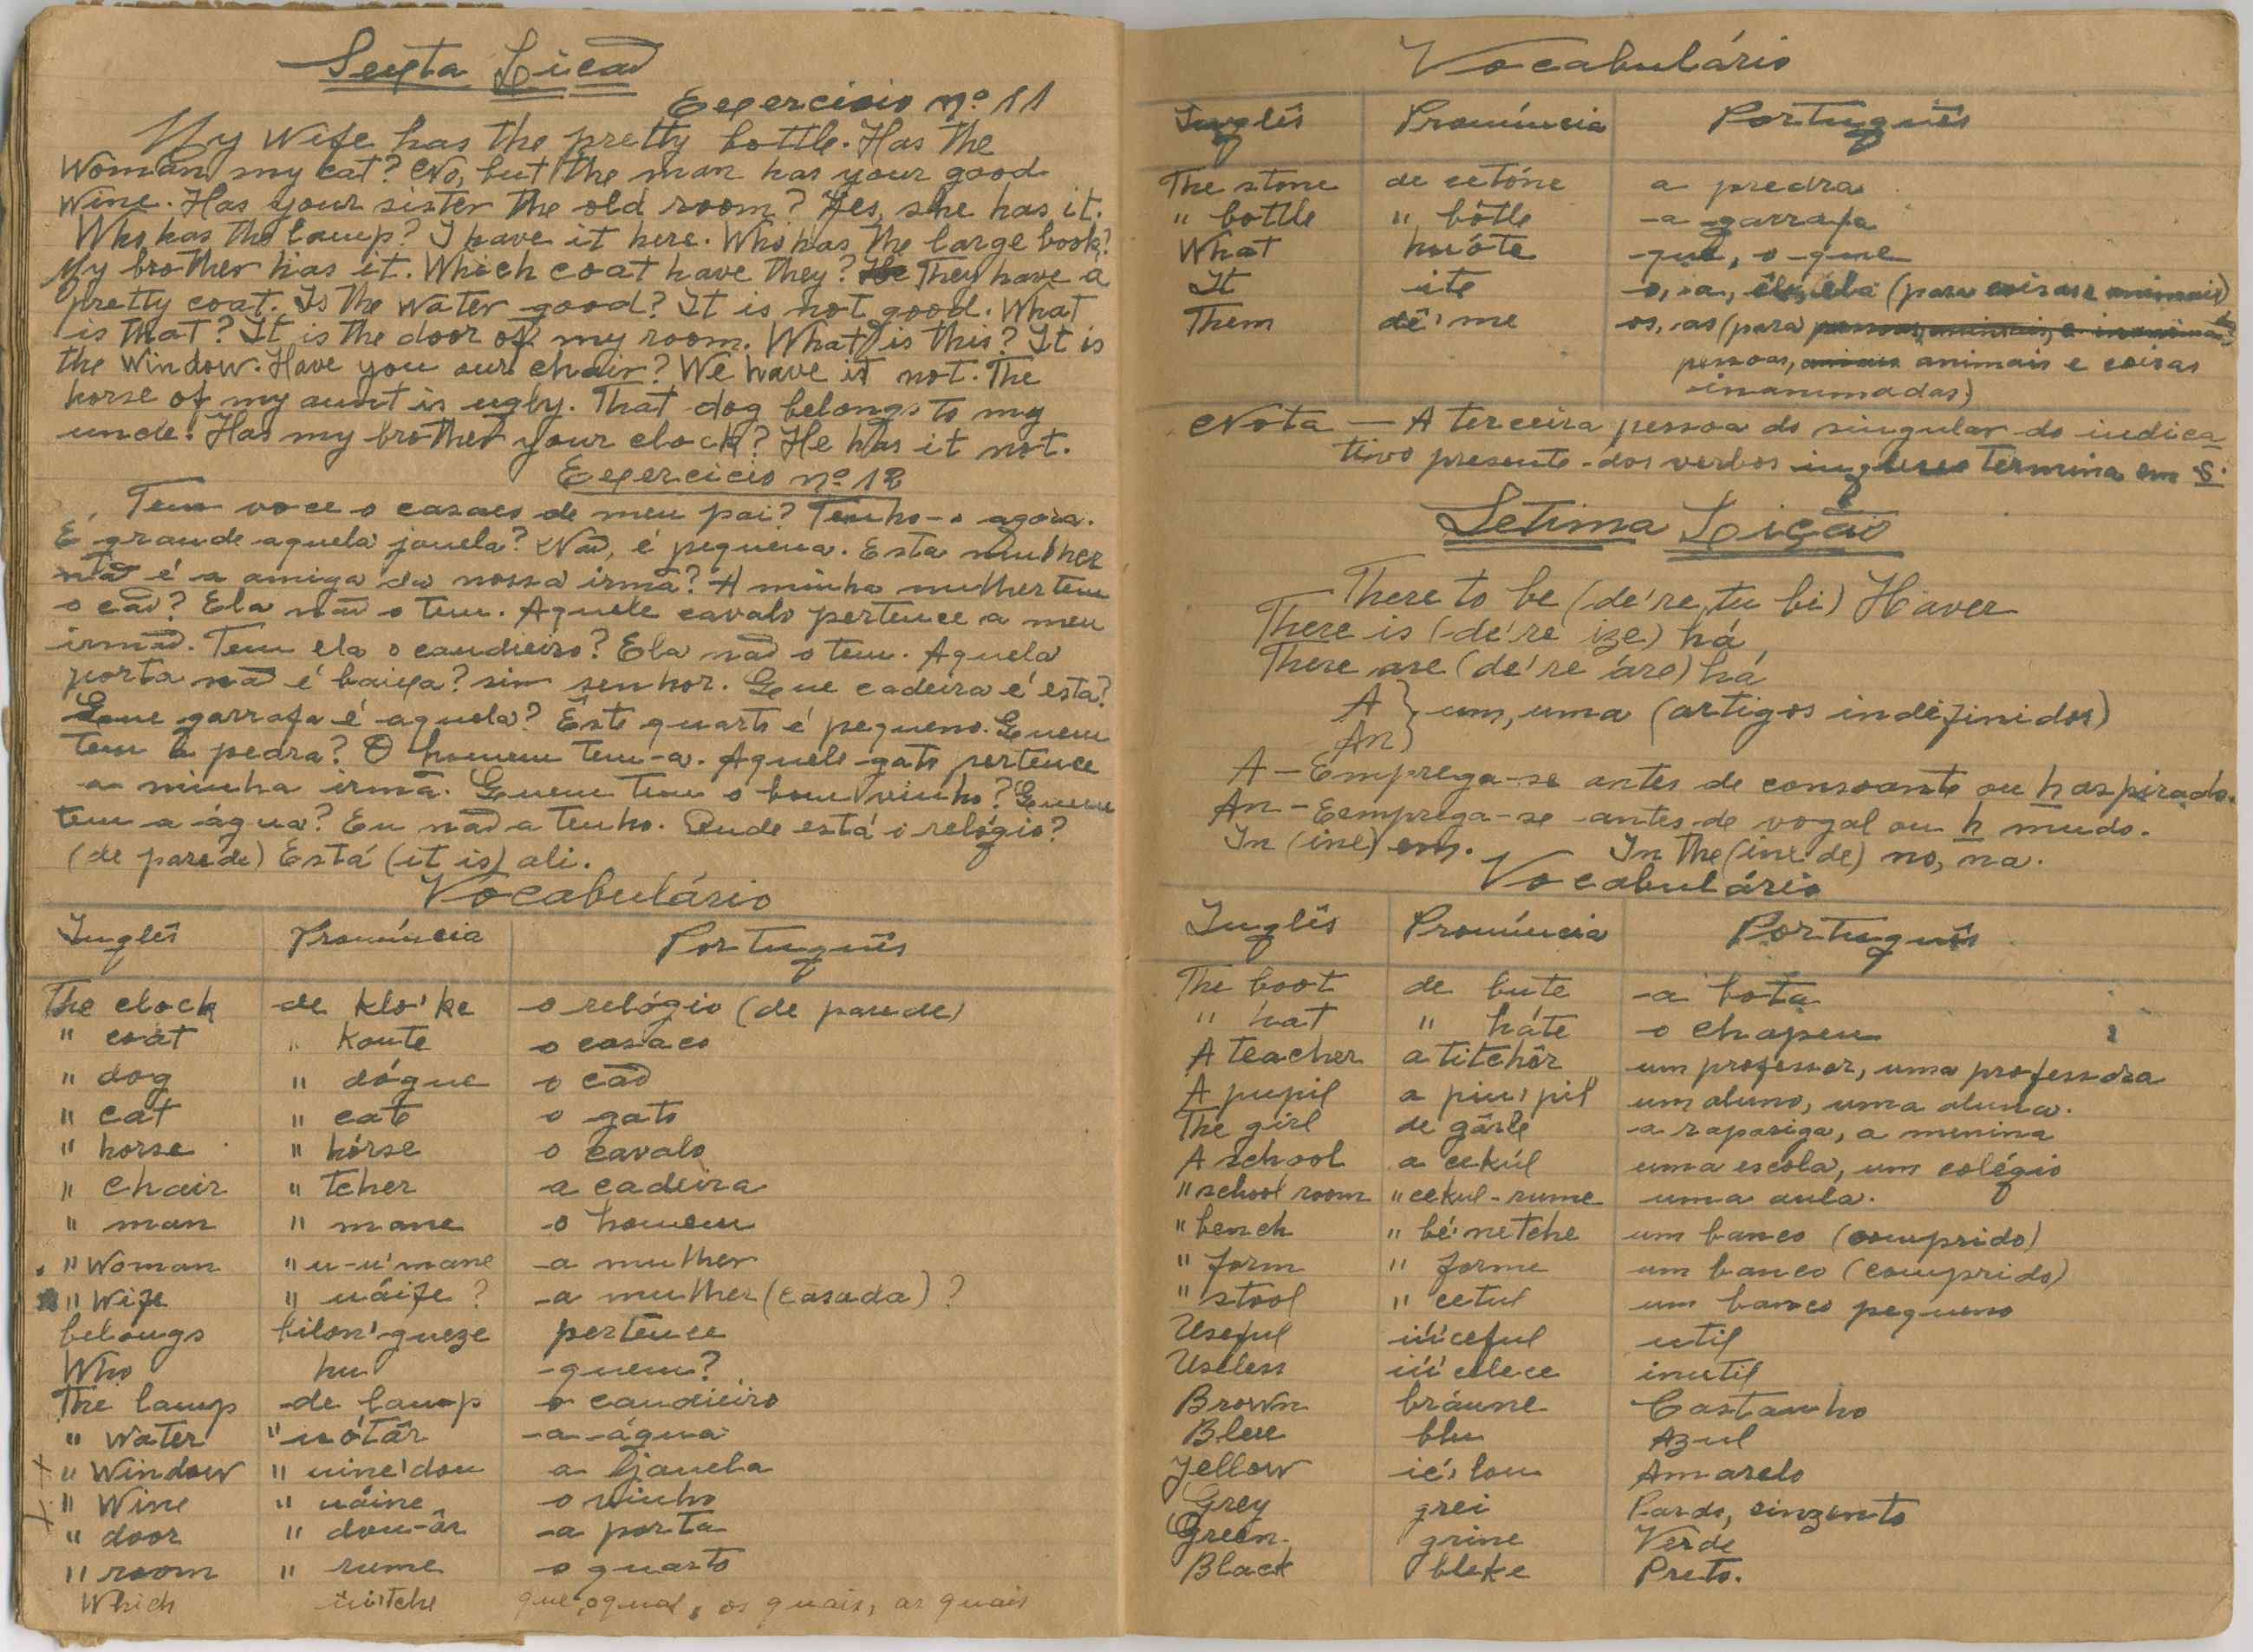 Sexta Lição
Exercicio nº 11
My wife has the pretty bottle. Has the
woman my cat? No, but the man has your good
wine. Has your sister the old room? Yes, she has it.
Who has the lamp? I have it here. Who has the large book?
My brother has it. Which coat have they? They have a
pretty coat. Is the water good? It is not good. What
is that? It is the door of my room. What is this? It is
the window. Have you our chair? We have it not. The
horse of my aunt is ugly. That dog belongs to my
uncle. Has my brother your clock? He has it not.
Exercicio nº 12
Tem voce o casaco de meu pai? Tenho-o agora.
É grande aquela janela? Não, é pequena. Esta mulher
não é a amiga da nossa irmã? A minha mulher tem
o cão? Ela não o tem. Aquele cavalo pertence a meu
irmão. Tem ela o candieiro? Ela não o tem. Aquela
porta não é baixa? sim senhor. Que cadeira é esta?
Que garrafa é aquela? Êste quarto é pequeno. Quem
tem a pedra? O homem tem-a. Aquele gato pertence
a minha irmã. Quem tem o bom vinho? Quem
tem a água? Eu não a tenho. Onde está o relógio?
(de parede) Está (it is) ali.
Vocabulário
Inglês Pronúncia Português
The clock de klo'ke o relógio (de parede)
" coat " koute o casaco
" dog " dógue o cão
" cat " cate o gato
" horse " hórse o cavalo
" chair " tcher a cadeira
" man " mane o homem
" Woman " u-u'mane a mulher
" Wife " uáife ? a mulher (casada) ?
belongs bilon'gueze pertence
Who hu quem?
The lamp de lamp o candieiro
" Water " uótâr a água
" Window " uine'dou a janela
" Wine " uáine o vinho
" door " dou-âr a porta
" room " rume o quarto
Which úitche que, o qual, os quais, as quais
Vocabulário
Inglês Pronúncia Português
The stone de cetóne a pedra
" bottle " bótle a garrafa
What huóte que, o que
It ite o, a, êle, ela (para coisas e animais)
Them dê'me os, as (para
pessoas, animais e coisas
inanimadas)
Nota — A terceira pessoa do singular do indica
tivo presente dos verbos ingleses termina em s.
Setima Lição
There to be (de're tu bi) Haver
There is (de're ize) há
There are (de're áre) há
A
An } um, uma (artigos indefinidos)
A — Emprega-se antes de consoante ou h aspirado.
An — Eemprega-se antes de vogal ou h mudo.
In (ine) em. In the (ine de) no, na.
Vocabulário
Inglês Pronúncia Português
The boot de bute a bota
" hat " háte o chapeu
A teacher a titchâr um professor, uma professora
A pupil a piu'pil um aluno, uma aluna.
The girl de gârle a rapariga, a menina
A school a cekúl uma escola, um colégio
" school room " cekul-rume uma aula.
" bench " bé'netche um banco (comprido)
" form " forme um banco (comprido)
" stool " cetul um banco pequeno
Useful iú'ceful util
Useless iú'celece inutil
Brown bráune Castanho
Blue blu Azul
Yellow ié'lou Amarelo
Grey grei Pardo, cinzento
Green grine Verde
Black bleke Preto.